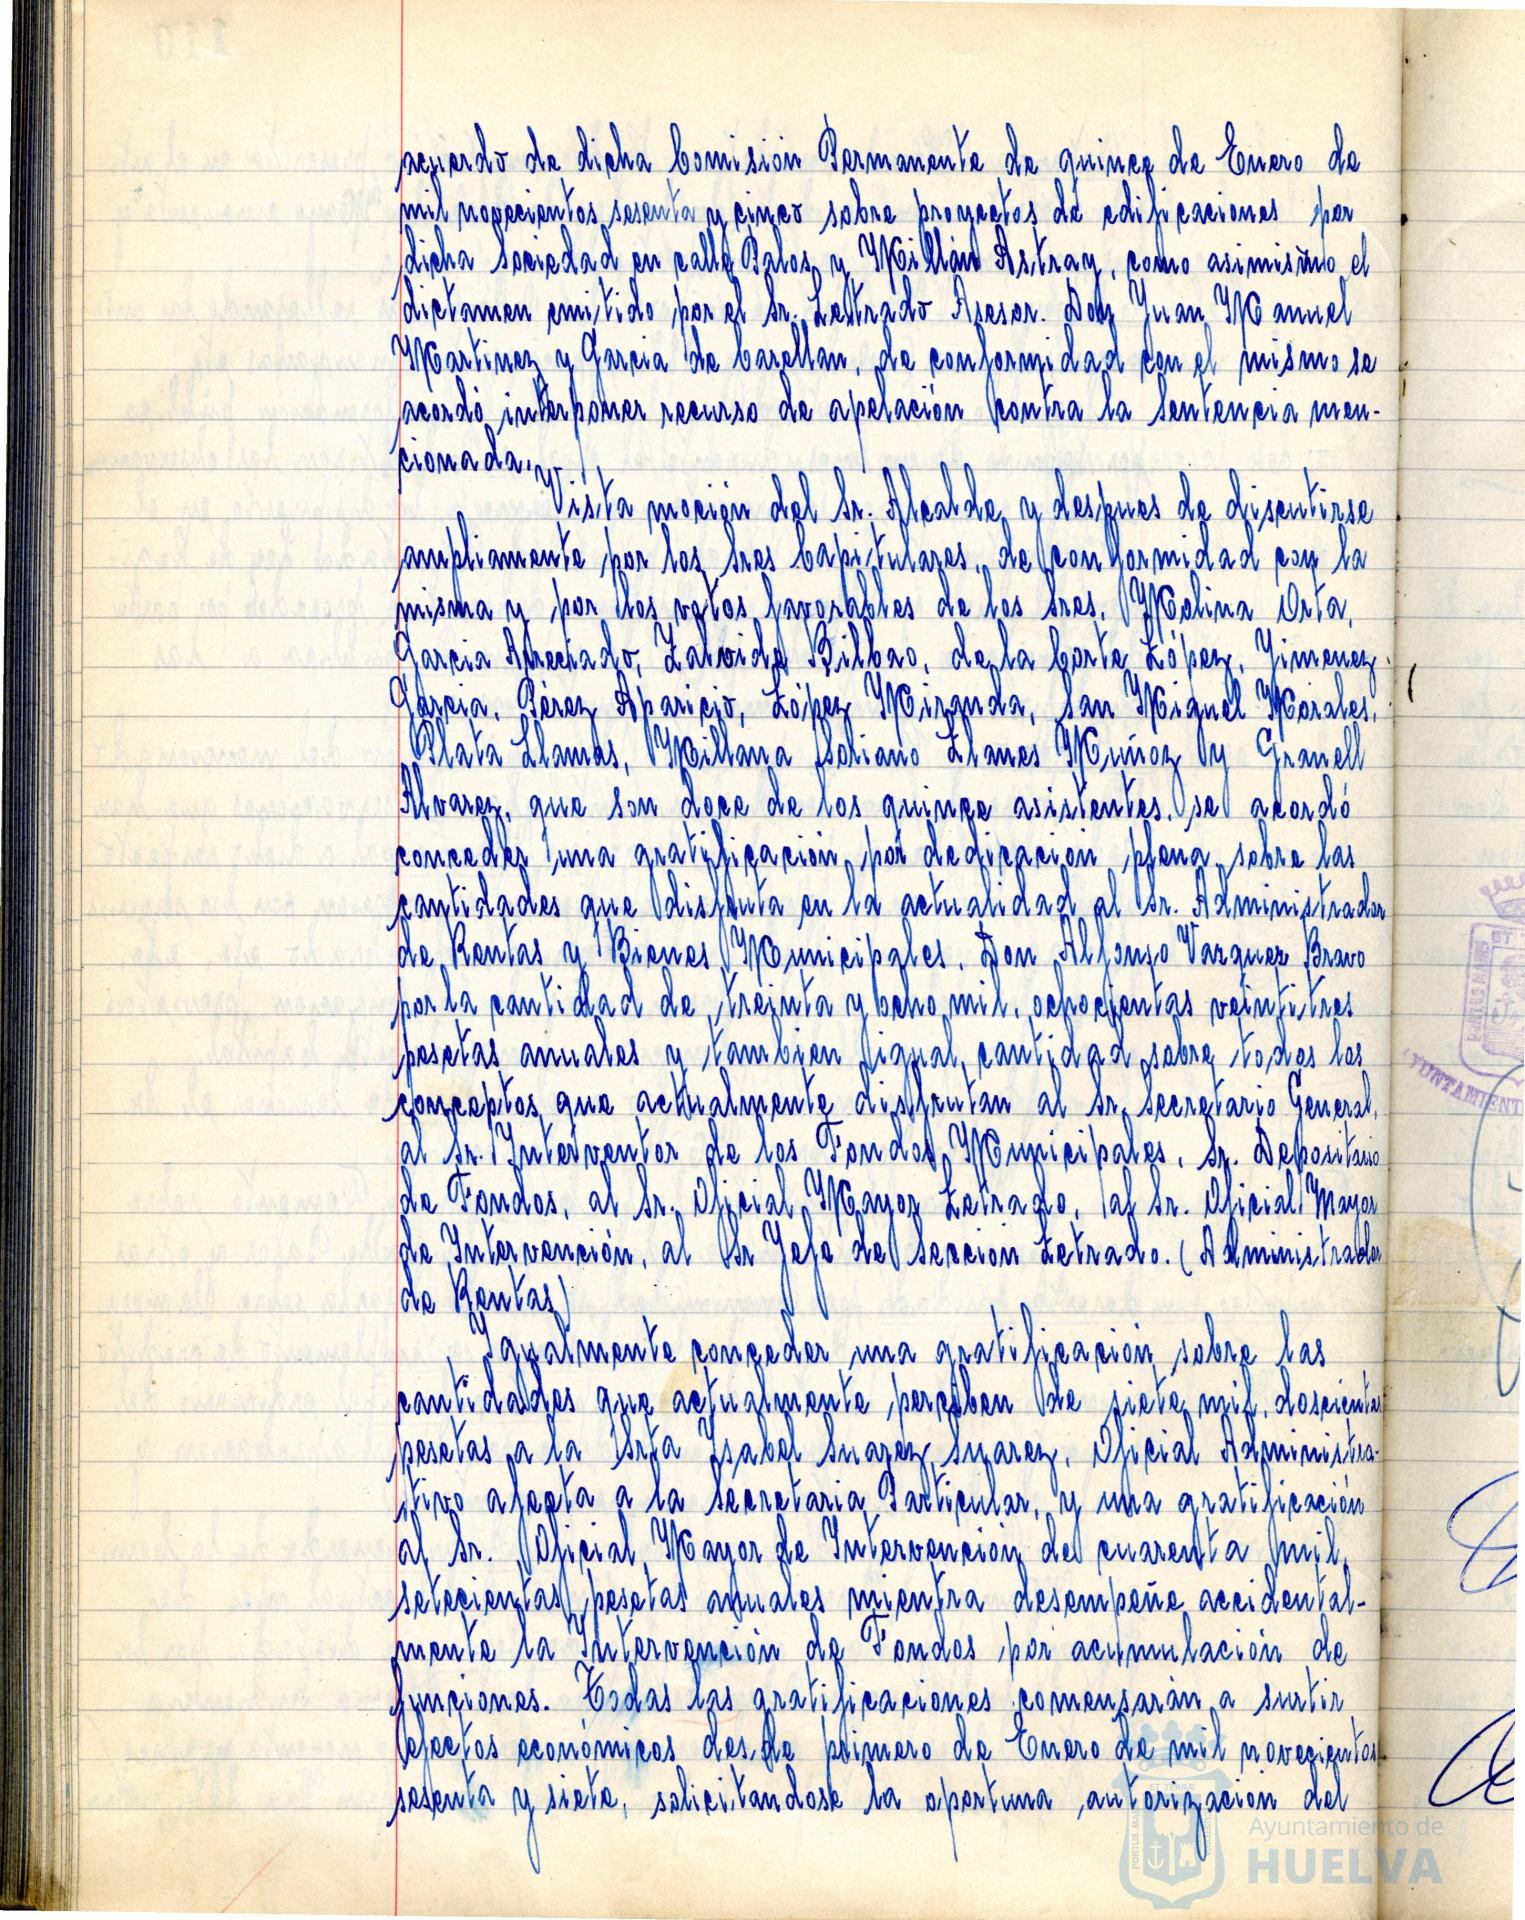 acuerdo de dicha Comisión Permanente de quince de Enero de
mil novecientos sesenta y cinco sobre proyectos de edificaciones por
dicha Sociedad en calle Palos y Millán Astray, como asimismo el
dictamen emitido por el Sr. Letrado Asesor. Don Juan Manuel
Martinez y Garcia de Carellan, de conformidad con el mismo se
acordó interponer recurso de apelación contra la Sentencia men-
cionada.
Vista moción del Sr. Alcalde y despues de discutirse
ampliamente por los Sres Capitulares, de conformidad con la
misma y por los votos favorables de los Sres. Molina Orta,
Garcia Arrechado, Zalvide Bilbao, de la Corte López, Jimenez
Garcia, Pérez Aparicio, López Miranda, San Miguel Morales,
Plata Llamas, Millana Soriano Llanes Muñoz y Granell
Alvarez, que son doce de los quince asistentes, se acordó
conceder una gratificación por dedicación plena sobre las
cantidades que disfruta en la actualidad al Sr. Administrador
de Rentas y Bienes Municipales, Don Alfonso Vazquez Bravo
por la cantidad de treinta y ocho mil, ochocientas veintitres
pesetas anuales y tambien igual cantidad sobre todos los
conceptos que actualmente disfrutan al Sr Secretario General,
al Sr. Interventor de los Fondos Municipales, Sr. Depositario
de Fondos, al Sr. Oficial Mayor Letrado, al Sr. Oficial Mayor
de Intervención, al Sr Jefe de Sección Letrado. (Administrador
de Rentas)
Igualmente conceder una gratificación sobre las
cantidades que actualmente perciben de siete mil, doscientas
pesetas a la Srta Ysabel Suarez Suarez, Oficial Administra-
tivo afecta a la Secretaria Particular, y una gratificación
al Sr. Oficial Mayor de Intervención de cuarenta mil,
setecientas pesetas anuales mientra desempeñe accidental-
mente la Intervención de Fondos por acumulación de
funciones. Todas las gratificaciones comensarán a surtir
efectos económicos desde primero de Enero de mil novecientos
sesenta y siete, solicitandose la oportuna autorización del
YUNTAMIENT
Ayuntamiento de
HUELVA